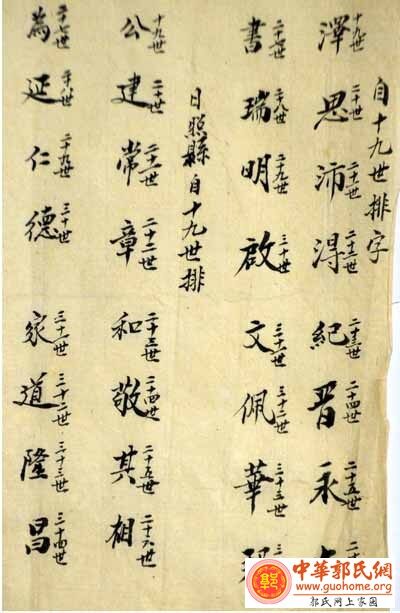 自十九世排字
十九世 二十世 二十一世 二十二世 二十三世 二十四世 二十五世
澤思沛淂紀晋永
二十七世 二十八世 二十九世 三十世 三十一世 三十二世 三十三世
書瑞明啟文佩華
日照縣自十九世排
十九世 二十世 二十一世 二十二世 二十三世 二十四世 二十五世 二十六世
公建常章和敬其相
二十七世 二十八世 二十九世 三十世 三十一世 三十二世 三十三世 三十四世
為延仁德家道隆昌
中華郭氏網
www.guohome.org
郭氏网上家園